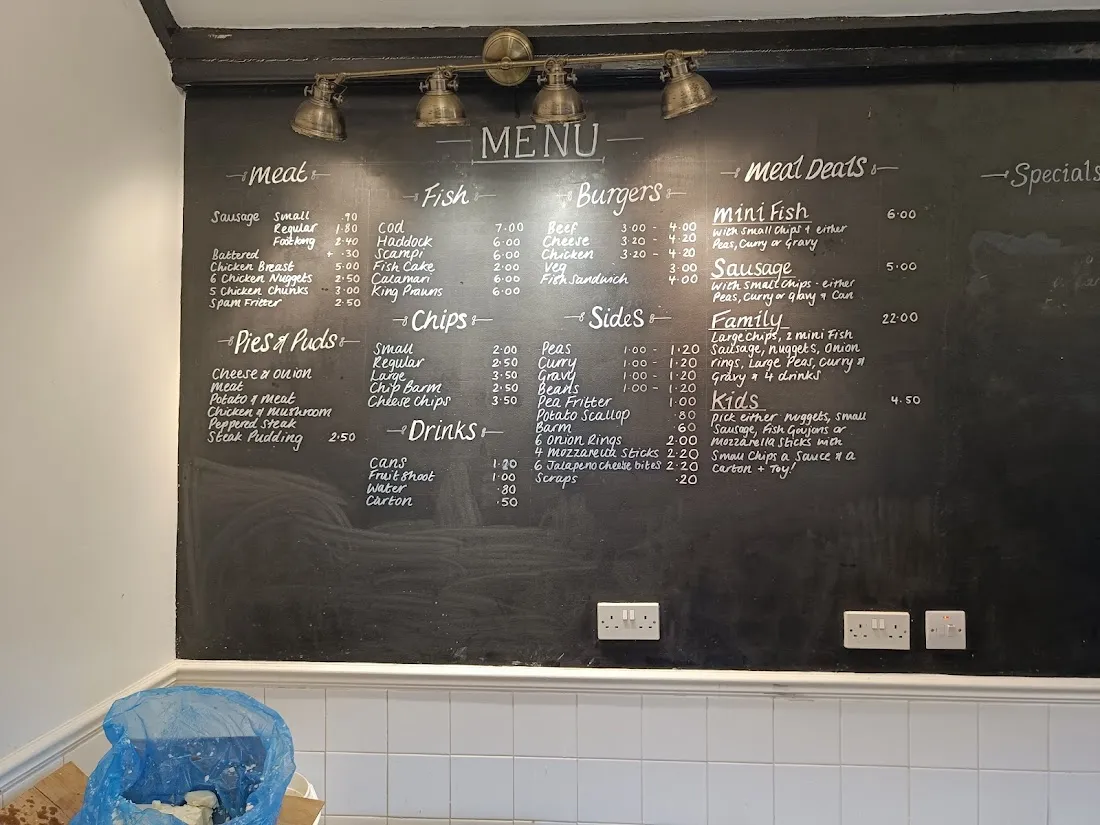 MENU
Meat
Sausage Small .90
Regular 1.80
Footlong 2.40
Battered + .30
Chicken Breast 5.00
6 Chicken Nuggets 2.50
5 Chicken Chunks 3.00
Spam Fritter 2.50
Pies & Puds
Cheese & Onion
Meat
Potato & Meat
Chicken & Mushroom
Peppered Steak
Steak Pudding 2.50
Fish
Cod 7.00
Haddock 6.00
Scampi 6.00
Fish Cake 2.00
Calamari 6.00
King Prawns 6.00
Chips
Small 2.00
Regular 2.50
Large 3.50
Chip Barm 2.50
Cheese Chips 3.50
Drinks
Cans 1.20
Fruit Shoot 1.00
Water .80
Carton .50
Burgers
Beef 3.00 - 4.00
Cheese 3.20 - 4.20
Chicken 3.20 - 4.20
Veg 3.00
Fish Sandwich 4.00
Sides
Peas 1.00 - 1.20
Curry 1.00 - 1.20
Gravy 1.00 - 1.20
Beans 1.00 - 1.20
Pea Fritter 1.00
Potato Scallop .80
Barm .60
6 Onion Rings 2.00
4 Mozzarella Sticks 2.20
6 Jalapeno cheese bites 2.20
Scraps .20
Meal Deals
Mini Fish 6.00
With Small Chips & either
Peas, Curry or Gravy
Sausage 5.00
With Small Chips - either
Peas, Curry or Gravy & Can
Family 22.00
Large Chips, 2 mini Fish
Sausage, nuggets, Onion
rings, Large Peas, Curry &
Gravy & 4 drinks
Kids 4.50
Pick either nuggets, small
Sausage, Fish Goujons or
Mozzarella Sticks with
Small Chips a Sauce & a
Carton + Toy!
Specials